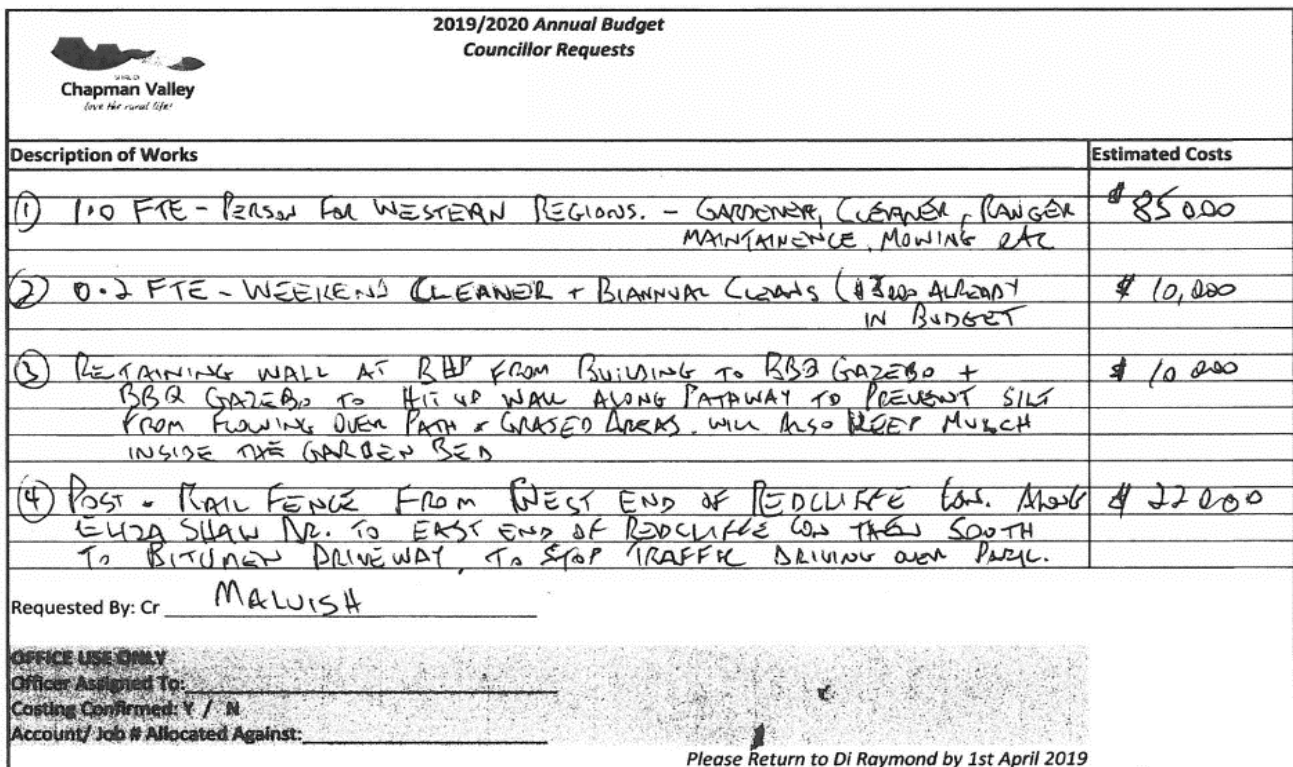 2019/2020 Annual Budget
Councillor Requests
SHIRE OF
Chapman Valley
love the rural life!
Description of Works
Estimated Costs
① 1.0 FTE - PERSON FOR WESTERN REGIONS. - GARDENER, CLEANER, RANGER
$85000
MAINTAINENCE, MOWING etc
② 0.2 FTE - WEEKEND CLEANER + BIANNUAL CLEANS ( ALREADY
$10,000
IN BUDGET
③ RETAINING WALL AT BHP FROM BUILDING TO BBQ GAZEBO +
$10000
BBQ GAZEBO TO HIT UP WALL ALONG PATHWAY TO PREVENT SILT
FROM FLOWING OVER PATH + GRASED AREAS. WILL ALSO KEEP MULCH
INSIDE THE GARDEN BED
④ POST + RAIL FENCE FROM WEST END OF REDCLIFFE CON. ALONG
$22000
ELIZA SHAW DR. TO EAST END OF REDCLIFFE CON THEN SOUTH
TO BITUMEN DRIVEWAY, TO STOP TRAFFIC DRIVING OVER PARK.
Requested By: Cr MALUISH
OFFICE USE ONLY
Officer Assigned To:
Costing Confirmed: Y / N
Account/ Job # Allocated Against:
Please Return to Di Raymond by 1st April 2019